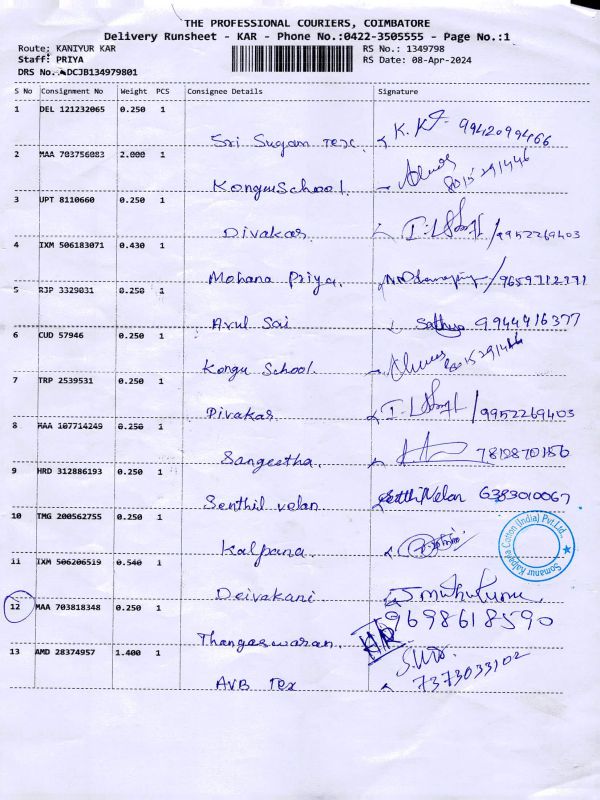 THE PROFESSIONAL COURIERS, COIMBATORE
Delivery Runsheet - KAR - Phone No.:0422-3505555 - Page No.:1
Route: KANIYUR KAR
RS No.: 1349798
Staff: PRIYA
RS Date: 08-Apr-2024
DRS No. DCJB134979801
S No Consignment No Weight PCS Consignee Details Signature
1 DEL 121232065 0.250 1
Sri Sugam Tex. K. 9942099466
2 MAA 703756083 2.000 1
Kongu School. 8015291446
3 UPT 8110660 0.250 1
Divakar. /9952269403
4 IXM 506183071 0.430 1
Mohana Priya. /9659712771
5 RJP 3329031 0.250 1
Arul Sai Sathya 9944416377
6 CUD 57946 0.250 1
Kongu School. 8015291446
7 TRP 2539531 0.250 1
Divakar /9952269403
8 MAA 107714249 0.250 1
Sangeetha.
9 HRD 312886193 0.250 1
Senthil velan Senthil Velan 6383010067
10 TMG 200562755 0.250 1
Kalpana. Somanur Kalpana Cotton (India) Pvt Ltd.,
11 IXM 506206519 0.540 1
Deivakani
12 MAA 703818348 0.250 1
9698618590
Thangeswaran. HR
13 AMD 28374957 1.400 1
AVB Tex 7373033102